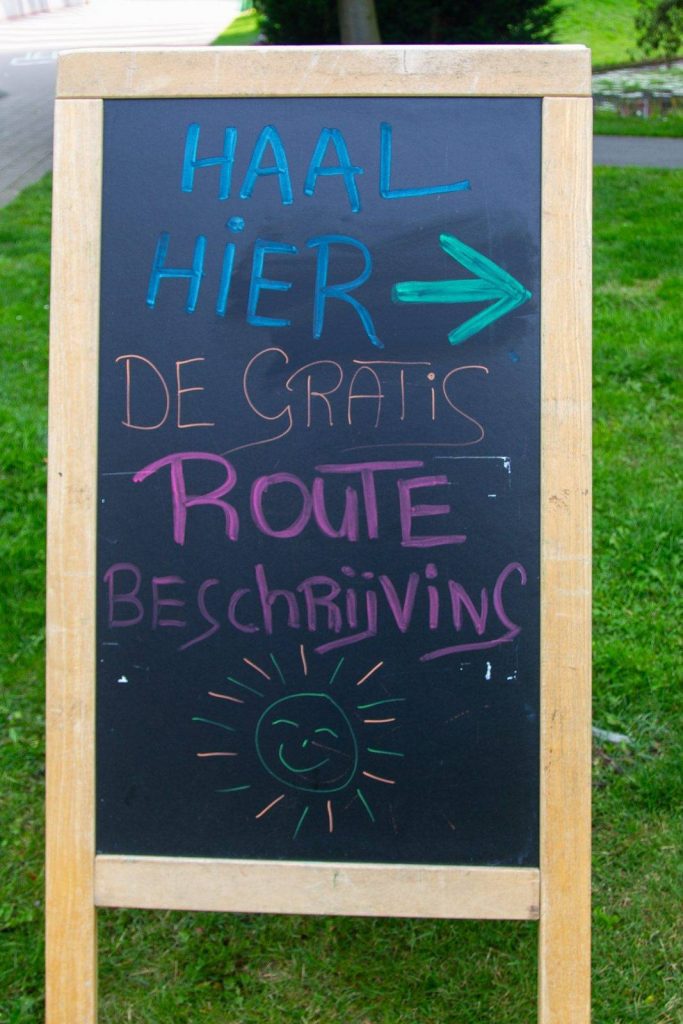 HAAL
HiER
DE GRATiS
ROUTE
BESCHRijViNG